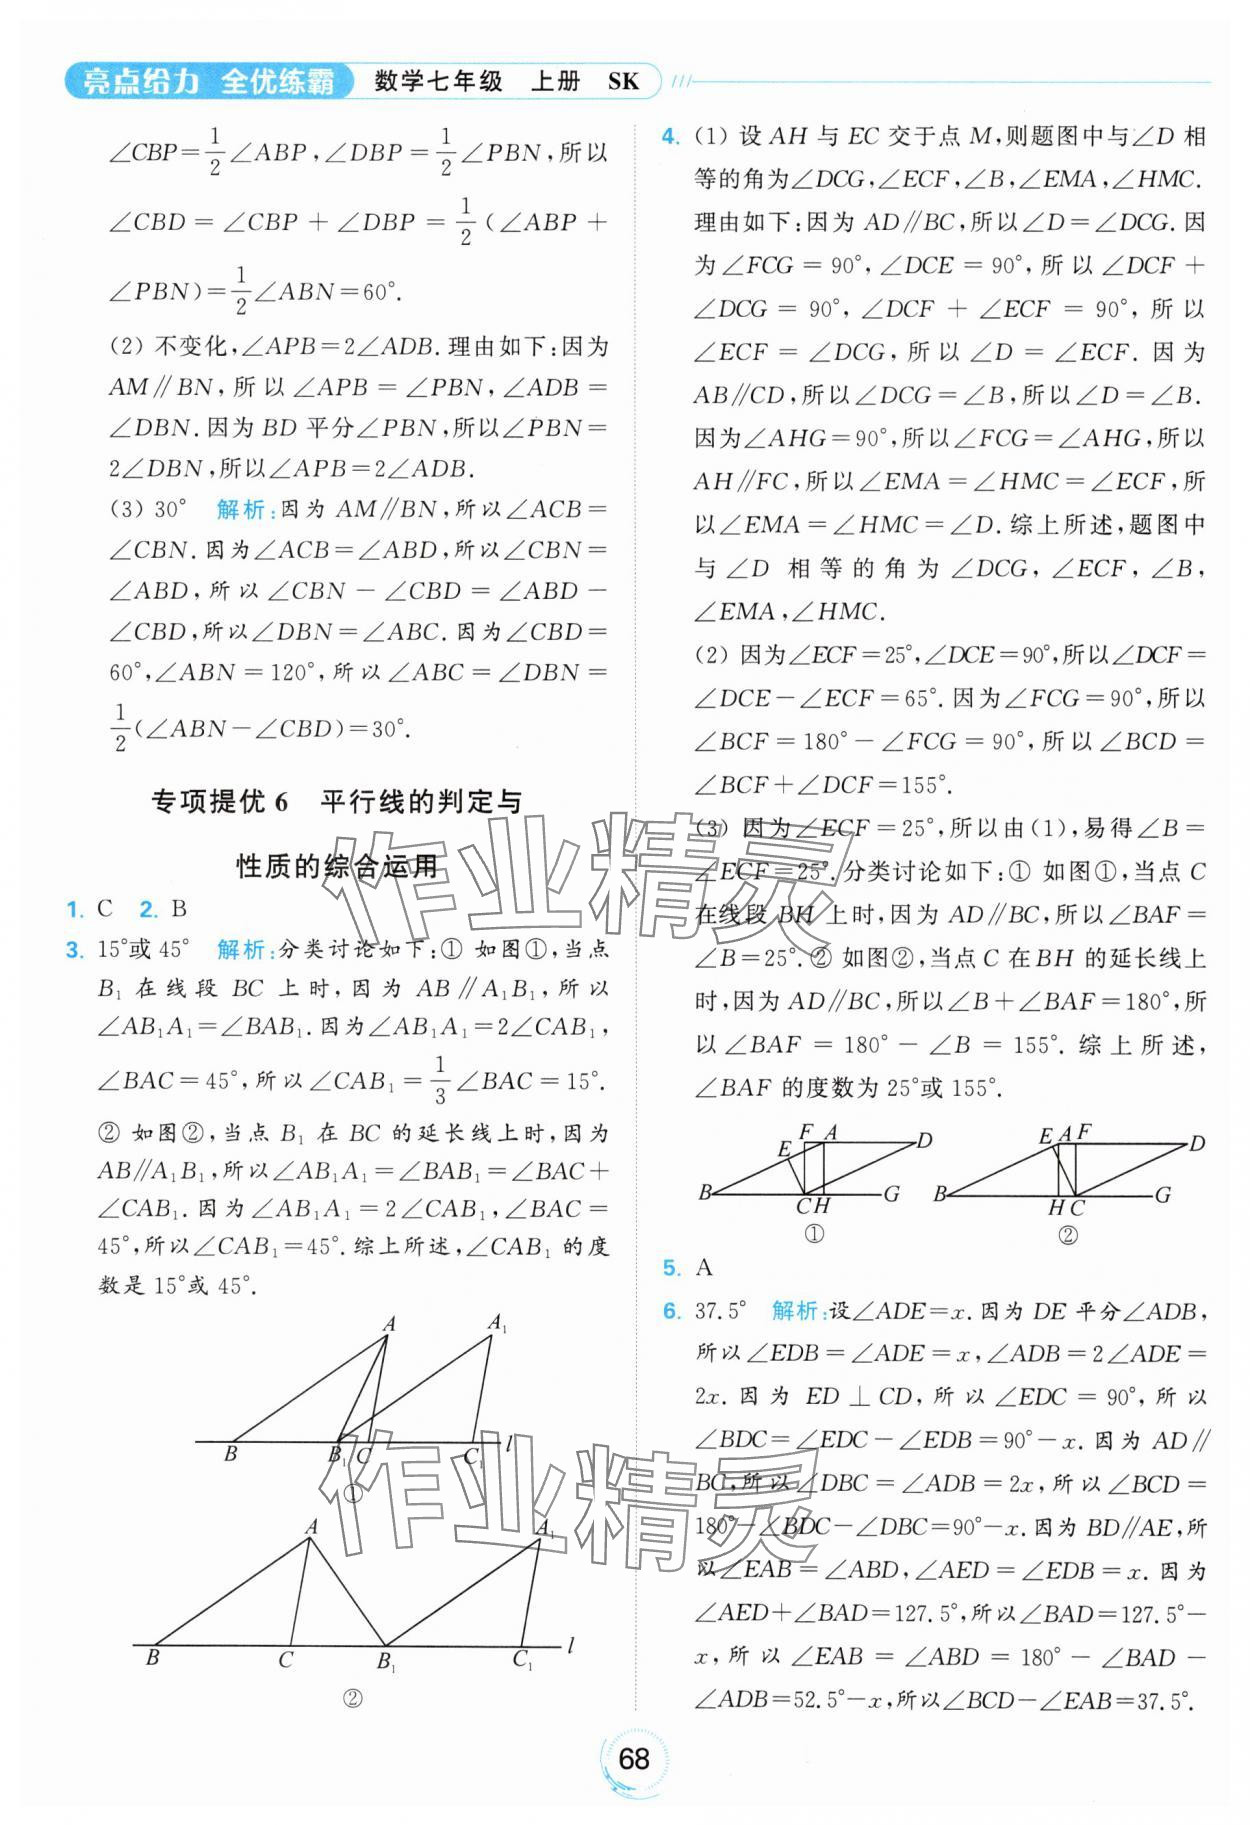 亮点给力 全优练霸 数学七年级 上册 SK
∠CBP=1/2∠ABP,∠DBP=1/2∠PBN,所以
∠CBD=∠CBP+∠DBP=1/2(∠ABP+
∠PBN)=1/2∠ABN=60°.
(2) 不变化,∠APB=2∠ADB.理由如下:因为
AM∥BN,所以∠APB=∠PBN,∠ADB=
∠DBN.因为BD平分∠PBN,所以∠PBN=
2∠DBN,所以∠APB=2∠ADB.
(3) 30° 解析:因为AM∥BN,所以∠ACB=
∠CBN.因为∠ACB=∠ABD,所以∠CBN=
∠ABD,所以∠CBN-∠CBD=∠ABD-
∠CBD,所以∠DBN=∠ABC.因为∠CBD=
60°,∠ABN=120°,所以∠ABC=∠DBN=
1/2(∠ABN-∠CBD)=30°.
专项提优6 平行线的判定与
性质的综合运用
1. C 2. B
3. 15°或45° 解析:分类讨论如下:① 如图①,当点
B₁在线段BC上时,因为AB∥A₁B₁,所以
∠AB₁A₁=∠BAB₁.因为∠AB₁A₁=2∠CAB₁,
∠BAC=45°,所以∠CAB₁=1/3∠BAC=15°.
② 如图②,当点B₁在BC的延长线上时,因为
AB∥A₁B₁,所以∠AB₁A₁=∠BAB₁=∠BAC+
∠CAB₁.因为∠AB₁A₁=2∠CAB₁,∠BAC=
45°,所以∠CAB₁=45°.综上所述,∠CAB₁的度
数是15°或45°.
A A₁
B B₁ C C₁ l
①
A A₁
B C B₁ C₁ l
②
4. (1) 设AH与EC交于点M,则题图中与∠D相
等的角为∠DCG,∠ECF,∠B,∠EMA,∠HMC.
理由如下:因为AD∥BC,所以∠D=∠DCG.因
为∠FCG=90°,∠DCE=90°,所以∠DCF+
∠DCG=90°,∠DCF+∠ECF=90°,所以
∠ECF=∠DCG,所以∠D=∠ECF.因为
AB∥CD,所以∠DCG=∠B,所以∠D=∠B.
因为∠AHG=90°,所以∠FCG=∠AHG,所以
AH∥FC,所以∠EMA=∠HMC=∠ECF,所
以∠EMA=∠HMC=∠D.综上所述,题图中
与∠D相等的角为∠DCG,∠ECF,∠B,
∠EMA,∠HMC.
(2) 因为∠ECF=25°,∠DCE=90°,所以∠DCF=
∠DCE-∠ECF=65°.因为∠FCG=90°,所以
∠BCF=180°-∠FCG=90°,所以∠BCD=
∠BCF+∠DCF=155°.
(3) 因为∠ECF=25°,所以由(1),易得∠B=
∠ECF=25°.分类讨论如下:① 如图①,当点C
在线段BH上时,因为AD∥BC,所以∠BAF=
∠B=25°.② 如图②,当点C在BH的延长线上
时,因为AD∥BC,所以∠B+∠BAF=180°,所
以∠BAF=180°-∠B=155°.综上所述,
∠BAF的度数为25°或155°.
F A D E B C H G
①
E A F D B H C G
②
5. A
6. 37.5° 解析:设∠ADE=x.因为DE平分∠ADB,
所以∠EDB=∠ADE=x,∠ADB=2∠ADE=
2x.因为ED⊥CD,所以∠EDC=90°,所以
∠BDC=∠EDC-∠EDB=90°-x.因为AD∥
BC,所以∠DBC=∠ADB=2x,所以∠BCD=
180°-∠BDC-∠DBC=90°-x.因为BD∥AE,所
以∠EAB=∠ABD,∠AED=∠EDB=x.因为
∠AED+∠BAD=127.5°,所以∠BAD=127.5°-
x,所以∠EAB=∠ABD=180°-∠BAD-
∠ADB=52.5°-x,所以∠BCD-∠EAB=37.5°.
作业精灵
作业精灵
68